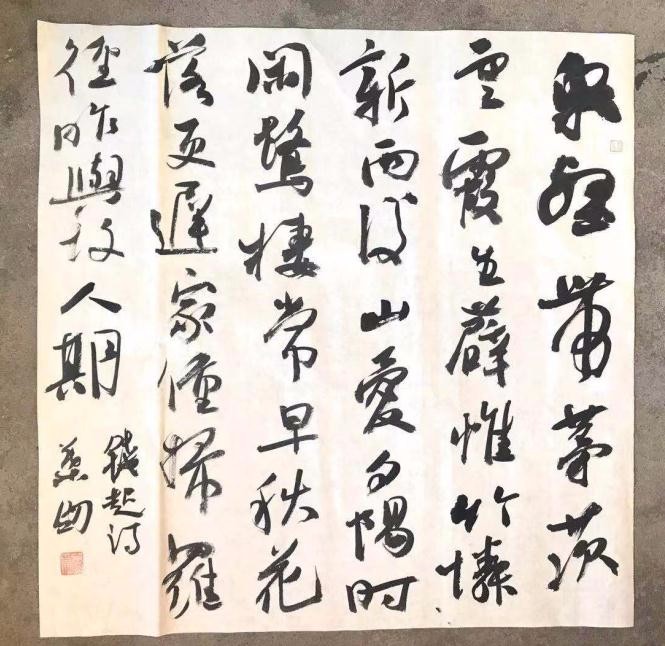 泉壑帶茅茨
雲霞生薜帷竹憐
新雨後山愛夕陽时
閑鷺棲常早秋花
落更遲家僮掃羅
徑昨與故人期
錢起詩